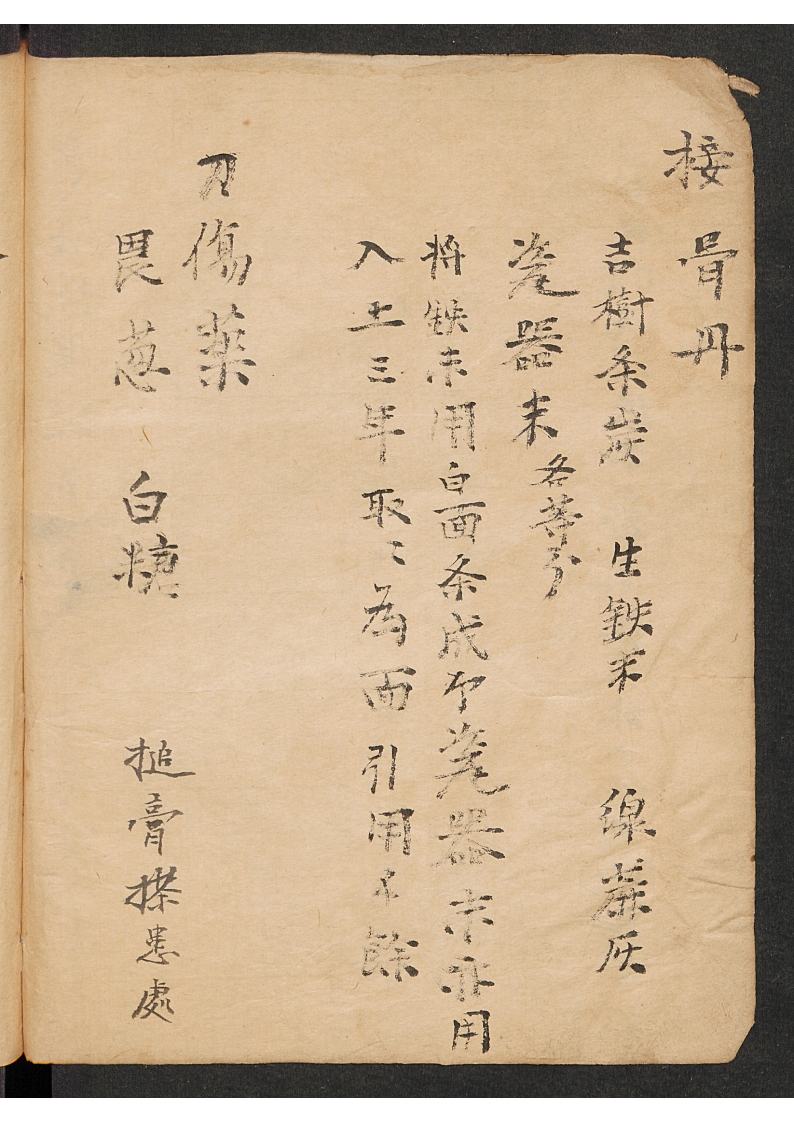 接骨丹
吉樹条炭 生鉄末 線蔴灰
瓷器末各等分
将鉄末用白面条成 瓷器末 用
入土三年取〻為面引用 餘
刀傷薬
畏葱 白糖 搥膏搽患處